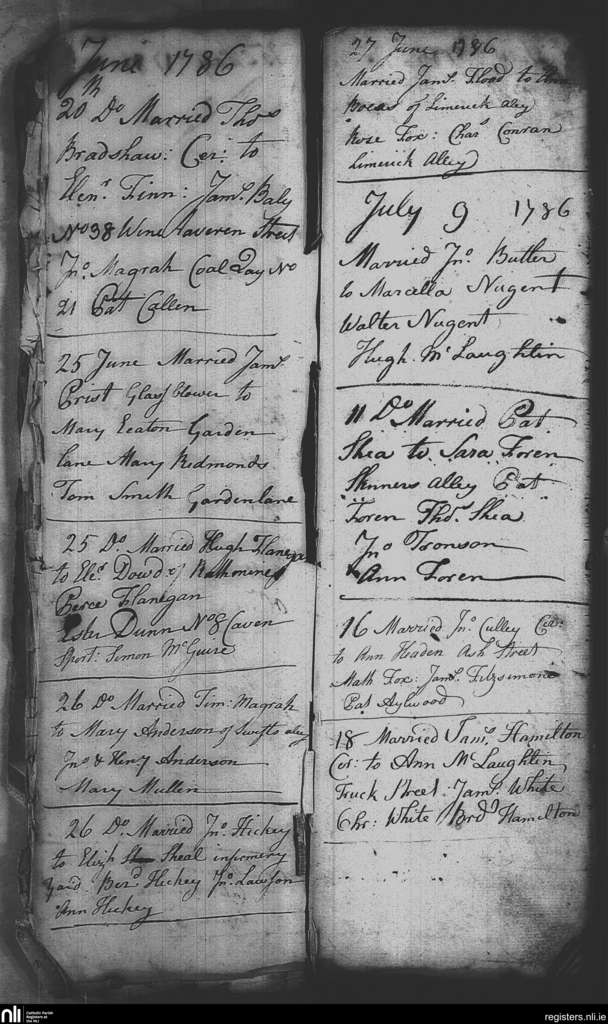 June 1786
th
20 Do Married Thos
Bradshaw: Cer: to
Elenr Finn: Jams Baly
No 38 Wine taveren Street
Jno Magrah Coal Quay No
21 Pat Callen
25 June Married Jams
Crist Glass blower to
Mary Eeaton Garden
lane Mary Redmonds
Tom Smith Gardenlane
25 Do Married Hugh Flanegan
to Eler Dowd of Rathmines
Peirce Flanegan
Ester Dunn No 8 Caven
Sport: Simon McGuire
26 Do Married Tim: Magrah
to Mary Anderson of Swifts aley
Jno & Henry Anderson
Mary Mullen
26 Do Married Jno Hickey
to Elizh Sheal infirmery
yard Berd Hickey Jno Lawson
Ann Hickey
27 June 1786
Married Jams Flood to Ann
of Limerick aley
Rose Fox: Chars Conran
Limerick Alley
July 9 1786
Married Jno Butler
to Marcella Nugent
Walter Nugent
Hugh McLaughlin
11 Do Married Pat
Shea to Sara Foren
Skinners alley Pat
Foren Thos Shea
Jno Tronson
Ann Foren
16 Married Jno Culley Cer:
to Ann Headen Ash Street
Math Fox: Jams Fitzsimons
Pat Aylwood
18 Married Jams Hamilton
Cer: to Ann McLaughlin
Truck Street Jams White
Chr: White Brd Hamilton
nli
Catholic Parish
Registers at
the NLI
registers.nli.ie